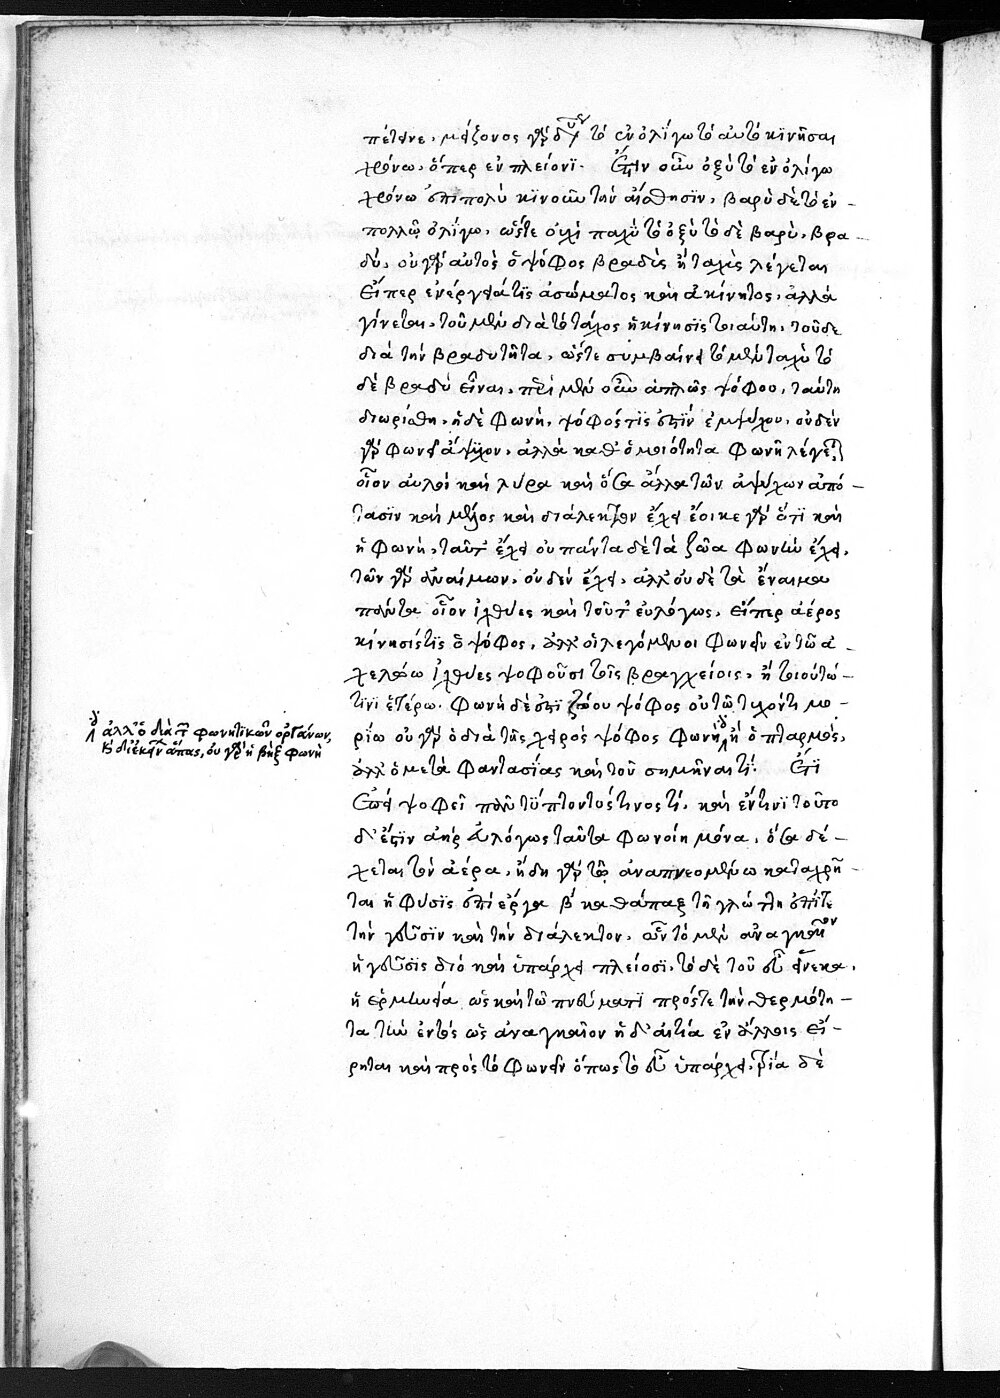 πέτεινε, μείζονος γὰρ δυ τὸ ἐν ὀλίγω τὸ αὐτὸ κινῆσαι
χρόνω, ὅπερ ἐν πλείονι. Ἔστιν οὖν ὀξὺ τὸ ἐν ὀλίγω
χρόνω ἐπιπολὺ κινοῦν τὴν αἴσθησιν, βαρὺ δὲ τὸ ἐν -
πολλῶ ὀλίγω, ὥστε οὐχὶ ταχὺ τὸ ὀξὺ τὸ δὲ βαρὺ, βρα -
δύ, οὐ γὰρ αὐτὸς ὁ ψόφος βραδὺς ἢ ταχὺς λέγεται
εἴπερ ἐνέργειά τις ἀσώματος καὶ ἀκίνητος, ἀλλὰ
γίνεται, τοῦ μὲν διὰ τὸ τάχος ἡ κίνησις τοιαύτη, τοῦ δὲ
διὰ τὴν βραδυτῆτα, ὥστε συμβαίνει τὸ μὲν ταχὺ τὸ
δὲ βραδὺ εἶναι, περὶ μὲν οὖν ἁπλῶς ψόφου, ταύτη
διωρίσθη, ἡ δὲ φωνὴ, ψόφος τίς ἐστὶν ἐμψύχου, οὐδὲν
γὰρ φωνεῖ ἄψυχον, ἀλλὰ καθ ὁμοιότητα φωνῆ λέγεται
οἷον αὐλοὶ καὶ λύρα καὶ ὅσα ἄλλα τῶν ἀψύχων ἀπό -
τασιν καὶ μέλος καὶ διάλεκτον ἔχει ἔοικε γὰρ ὅτι καὶ
ἡ φωνὴ, ταῦτ ἔχει οὐ πάντα δὲ τὰ ζῶα φωνὴν ἔχει,
τῶν γὰρ ἀναίμων, οὐδὲν ἔχει, ἀλλ οὐδὲ τὰ ἔναιμα
πάντα οἷον ἰχθύες καὶ τοῦτ εὐλόγως, εἴπερ ἀέρος
κίνησίς τις ὁ ψόφος, ἀλλ οἱ λεγόμενοι φωνεῖν ἐν τῶ ἀ -
χελώω ἰχθύες ψοφοῦσι τοῖς βραγχείοις, ἤ τοιούτω -
τινὶ ἑτέρω. φωνὴ δὲ ἐστὶ ζώου ψόφος οὐ τῶ τυχόντι μο -
ρίω οὐ γὰρ ὁ διὰ τῆς χειρὸς ψόφος φωνὴ, ἢ ὁ πταρμός,
ἀλλ ὁ μετὰ φαντασίας καὶ τοῦ σημῆναί τι. Ἔτι
ἐπεὶ ψοφεῖ πᾶν τύπτοντός τινος τί, καὶ ἔν τινι τοῦτο
δ' ἐστὶν ἀὴρ εὐλόγως ταῦτα φωνοίη μόνα, ὅσα δέ -
χεται τὸν ἀέρα, ἤδη γὰρ τῶ ἀναπνεομένω καταχρῆ -
ται ἡ φύσις ἐπὶ ἔργα β' καθάπερ τῆ γλώττη ἐπί τε
τὴν γεῦσιν καὶ τὴν διάλεκτον, ὧν τὸ μὲν ἀναγκαῖον
ἡ γεῦσις διὸ καὶ ὑπάρχει πλείοσι, τὸ δὲ τοῦ εὖ ἕνεκα,
ἡ ἑρμηνεία ὡς καὶ τῶ πνεύματι πρός τε τὴν θερμότη -
τα τὴν ἐντὸς ὡς ἀναγκαῖον ἡ δ' αἰτία ἐν ἄλλοις εἴ -
ρηται καὶ πρὸς τὸ φωνεῖν ὅπως τὸ εὖ ὑπάρχει,
ἀλλ' ὁ διὰ τῶν φωνητικῶν ὀργάνων,
ἅπας, οὐ γὰρ ἡ βὴξ φωνὴ